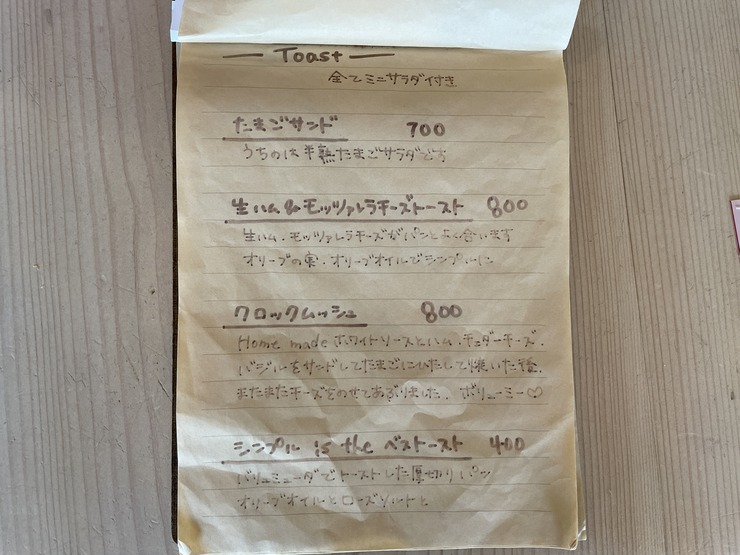 — Toast —
全てミニサラダ付き
たまごサンド 700
うちのは半熟たまごサラダです
生ハム&モッツァレラチーズトースト 800
生ハム・モッツァレラチーズがパンとよく合います
オリーブの実・オリーブオイルでシンプルに
クロックムッシュ 800
Home made ホワイトソースとハム・チェダーチーズ・
バジルをサンドしてたまごにひたして焼いた後、
またまたチーズをのせてあぶりました。ボリューミー♡
シンプル is the ベストースト 400
バリュミューダでトーストした厚切りパン
オリーブオイルとローズソルトと